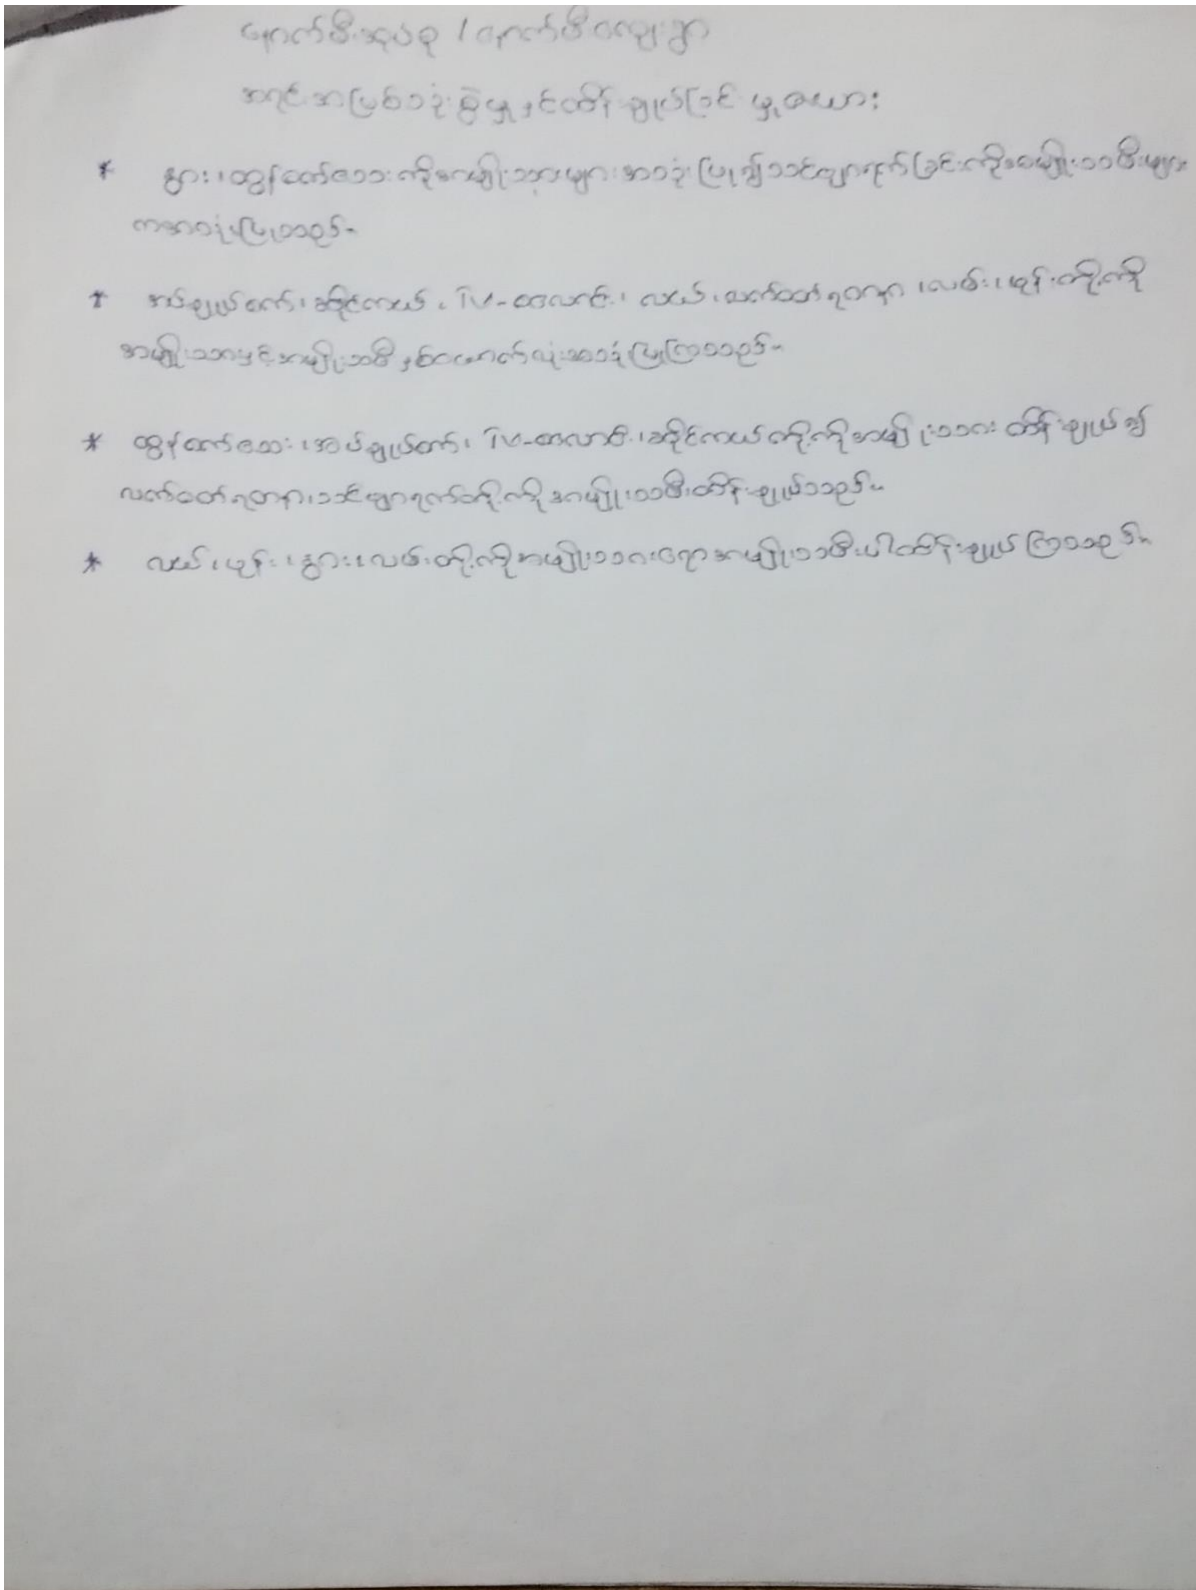 နောက်မီးအုပ်စု / နောက်မီးကျေးရွာ
အရင်းအမြစ်သုံးစွဲမှုနှင့်ထိန်းချုပ်ခြင်း မှုဇယား
* နွား၊ ထွန်စက်လေးကိုအမျိုးသားများအသုံးပြု၍သင်ဖျာရက်ခြင်းကိုအမျိုးသမီးများ
ကအသုံးပြုသည်။
* အပ်ချုပ်စက်၊ ဆိုင်ကယ်၊ TV-စလောင်း၊ လယ်၊ လက်ဝတ်ရတနာ၊ လမ်း၊ ဖုန်းတို့ကို
အမျိုးသားနှင့်အမျိုးသမီးနှစ်ယောက်လုံးအသုံးပြုကြသည်။
* ထွန်စက်လေး၊ အပ်ချုပ်စက်၊ TV-စလောင်း၊ ဆိုင်ကယ်တို့ကိုအမျိုးသားထိန်းချုပ်၍
လက်ဝတ်ရတနာ၊ သင်ဖျာရက်တို့ကိုအမျိုးသမီးထိန်းချုပ်သည်။
* လယ်၊ ဖုန်း၊ နွား၊ လမ်းတို့ကိုအမျိုးသားရောအမျိုးသမီးပါထိန်းချုပ်ကြသည်။